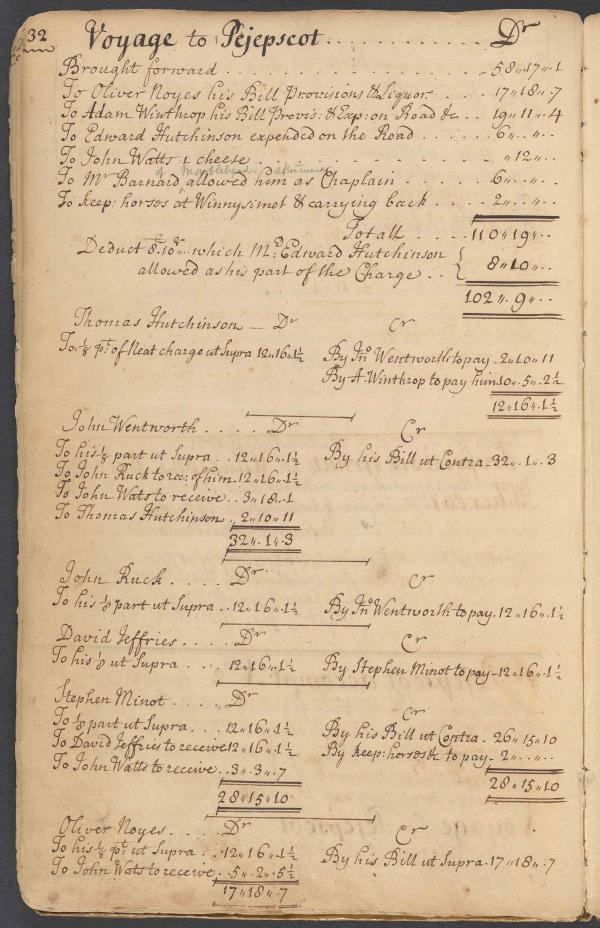 32 Voyage to Pejepscot . . . . . . . . . . . . Dr
Brought forward . . . . . . . . . . . . . 58〃17〃1
To Oliver Noyes his Bill Provisions & Liquors . . . 17〃18〃7
To Adam Winthrop his Bill Provis: & Exp: on Road &c . . 19〃11〃4
To Edward Hutchinson expended on the Road . . . . . 6〃..〃..
To John Watts 1 cheese . . . . . . . . . . . . 〃12〃..
of Marblehead
To Mr Barnard allowed him as Chaplain . . . . . 6〃..〃..
To keep: horses at Winnysimet & carrying back . . . . 2〃..〃..
Totall . . . . 110〃19〃..
Deduct £8〃10〃.. which Mr. Edward Hutchinson
allowed as his part of the Charge . . { 8〃10〃..
102〃9〃..
Thomas Hutchinson — Dr Cr
To ⅛ pt. of Neat charge ut Supra 12〃16〃1½ By Jno. Wentworth to pay - 2〃10〃11
By A: Winthrop to pay him 10〃5〃2½
12〃16〃1½
John Wentworth . . . . . . Dr Cr
To his ⅛ part ut Supra . . 12〃16〃1½ By his Bill ut Contra - 32〃1〃3
To John Ruck to rec: of him - 12〃16〃1½
To John Wats to receive . . 3〃18〃1
To Thomas Hutchinson . . 2〃10〃11
32〃1〃3
John Ruck . . . . Dr Cr
To his ⅛ part ut Supra . . 12〃16〃1½ By Jno. Wentworth to pay - 12〃16〃1½
David Jeffries . . . . . Dr Cr
To his ⅛ ut Supra . . . 12〃16〃1½ By Stephen Minot to pay - 12〃16〃1½
Stephen Minot . . . . . Dr Cr
To ⅛ part ut Supra . . . 12〃16〃1½ By his Bill ut Contra - 26〃15〃10
To David Jeffries to receive 12〃16〃1½ By keep: horses &c to pay - 2〃..〃..
To John Watts to receive . . 3〃3〃7 28〃15〃10
28〃15〃10
Oliver Noyes . . . . Dr Cr
To his ⅛ pt. ut Supra . . 12〃16〃1½ By his Bill ut Supra - 17〃18〃7
To John Wats to receive . . 5〃2〃5½
17〃18〃7